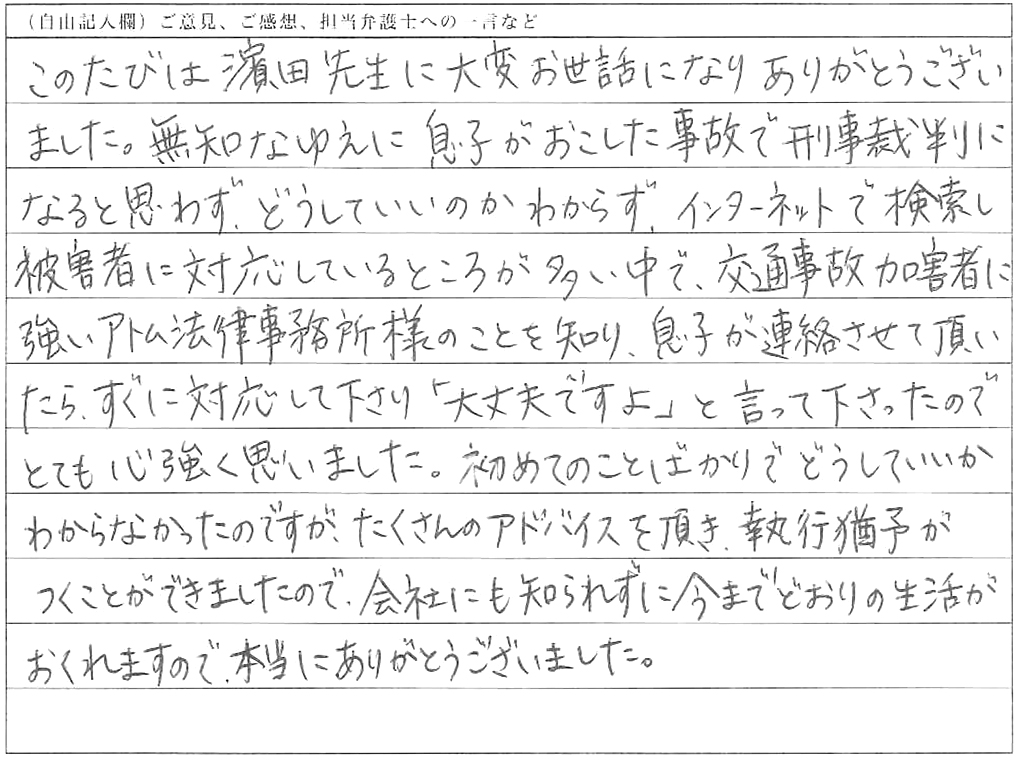 （自由記入欄）ご意見、ご感想、担当弁護士への一言など
このたびは濱田先生に大変お世話になりありがとうござい
ました。無知なゆえに息子がおこした事故で刑事裁判に
なると思わず、どうしていいのかわからず、インターネットで検索し
被害者に対応しているところが多い中で、交通事故加害者に
強いアトム法律事務所様のことを知り、息子が連絡させて頂い
たら、すぐに対応して下さり「大丈夫ですよ」と言って下さったので
とても心強く思いました。初めてのことばかりでどうしていいか
わからなかったのですが、たくさんのアドバイスを頂き、執行猶予が
つくことができましたので、会社にも知られずに今までどおりの生活が
おくれますので、本当にありがとうございました。